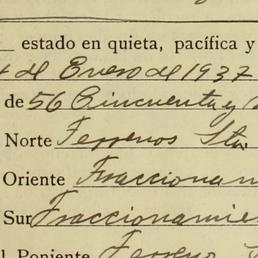 estado en quieta, pacífica y
de Enero de 1937
de 56 Cincuenta y
Norte Terrenos Sta.
Oriente Fraccionam
Sur Fraccionamie
l Poniente Terreno